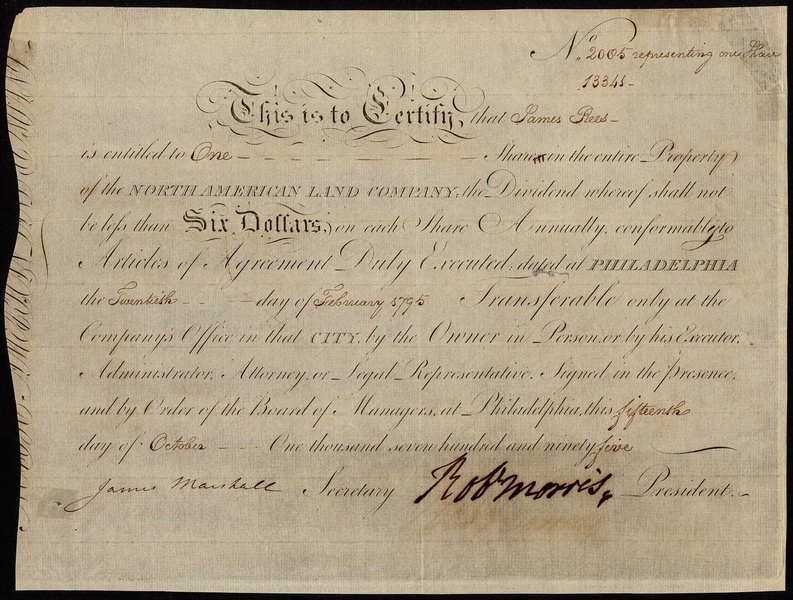 No. 2005 representing one Share
13341-
This is to Certify, that James Rees-
is entitled to One - - - - - - - - - Share in the entire Property
of the NORTH AMERICAN LAND COMPANY, the Dividend whereof shall not
be less than Six Dollars, on each Share Annually, conformably to
Articles of Agreement Duly Executed, dated at PHILADELPHIA
the Twentieth - - - day of February 1795 Transferable only at the
Company's Office in that CITY, by the Owner in Person, or by his Executor,
Administrator, Attorney, or Legal Representative. Signed in the presence,
and by Order of the Board of Managers, at Philadelphia, this fifteenth
day of October - - - One thousand seven hundred and ninety five
James Marshall Secretary Rob Morris, President.